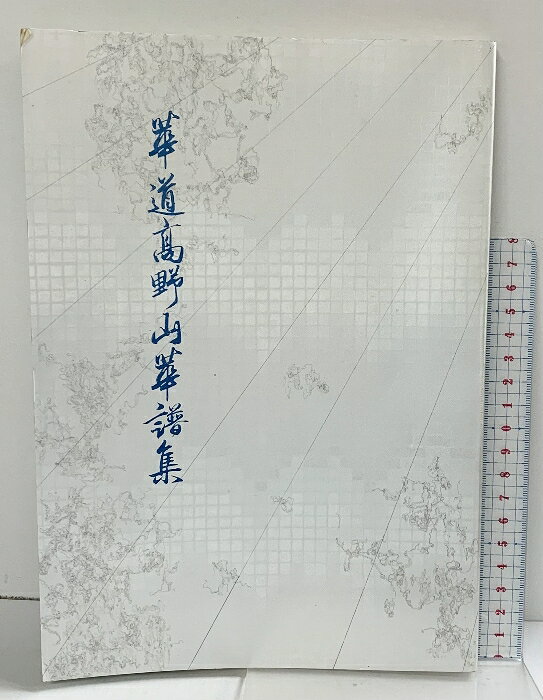 華道高野山華譜集
8
7
6
5
4
3
2
1
0
9
8
7
6
5
4
3
2
1